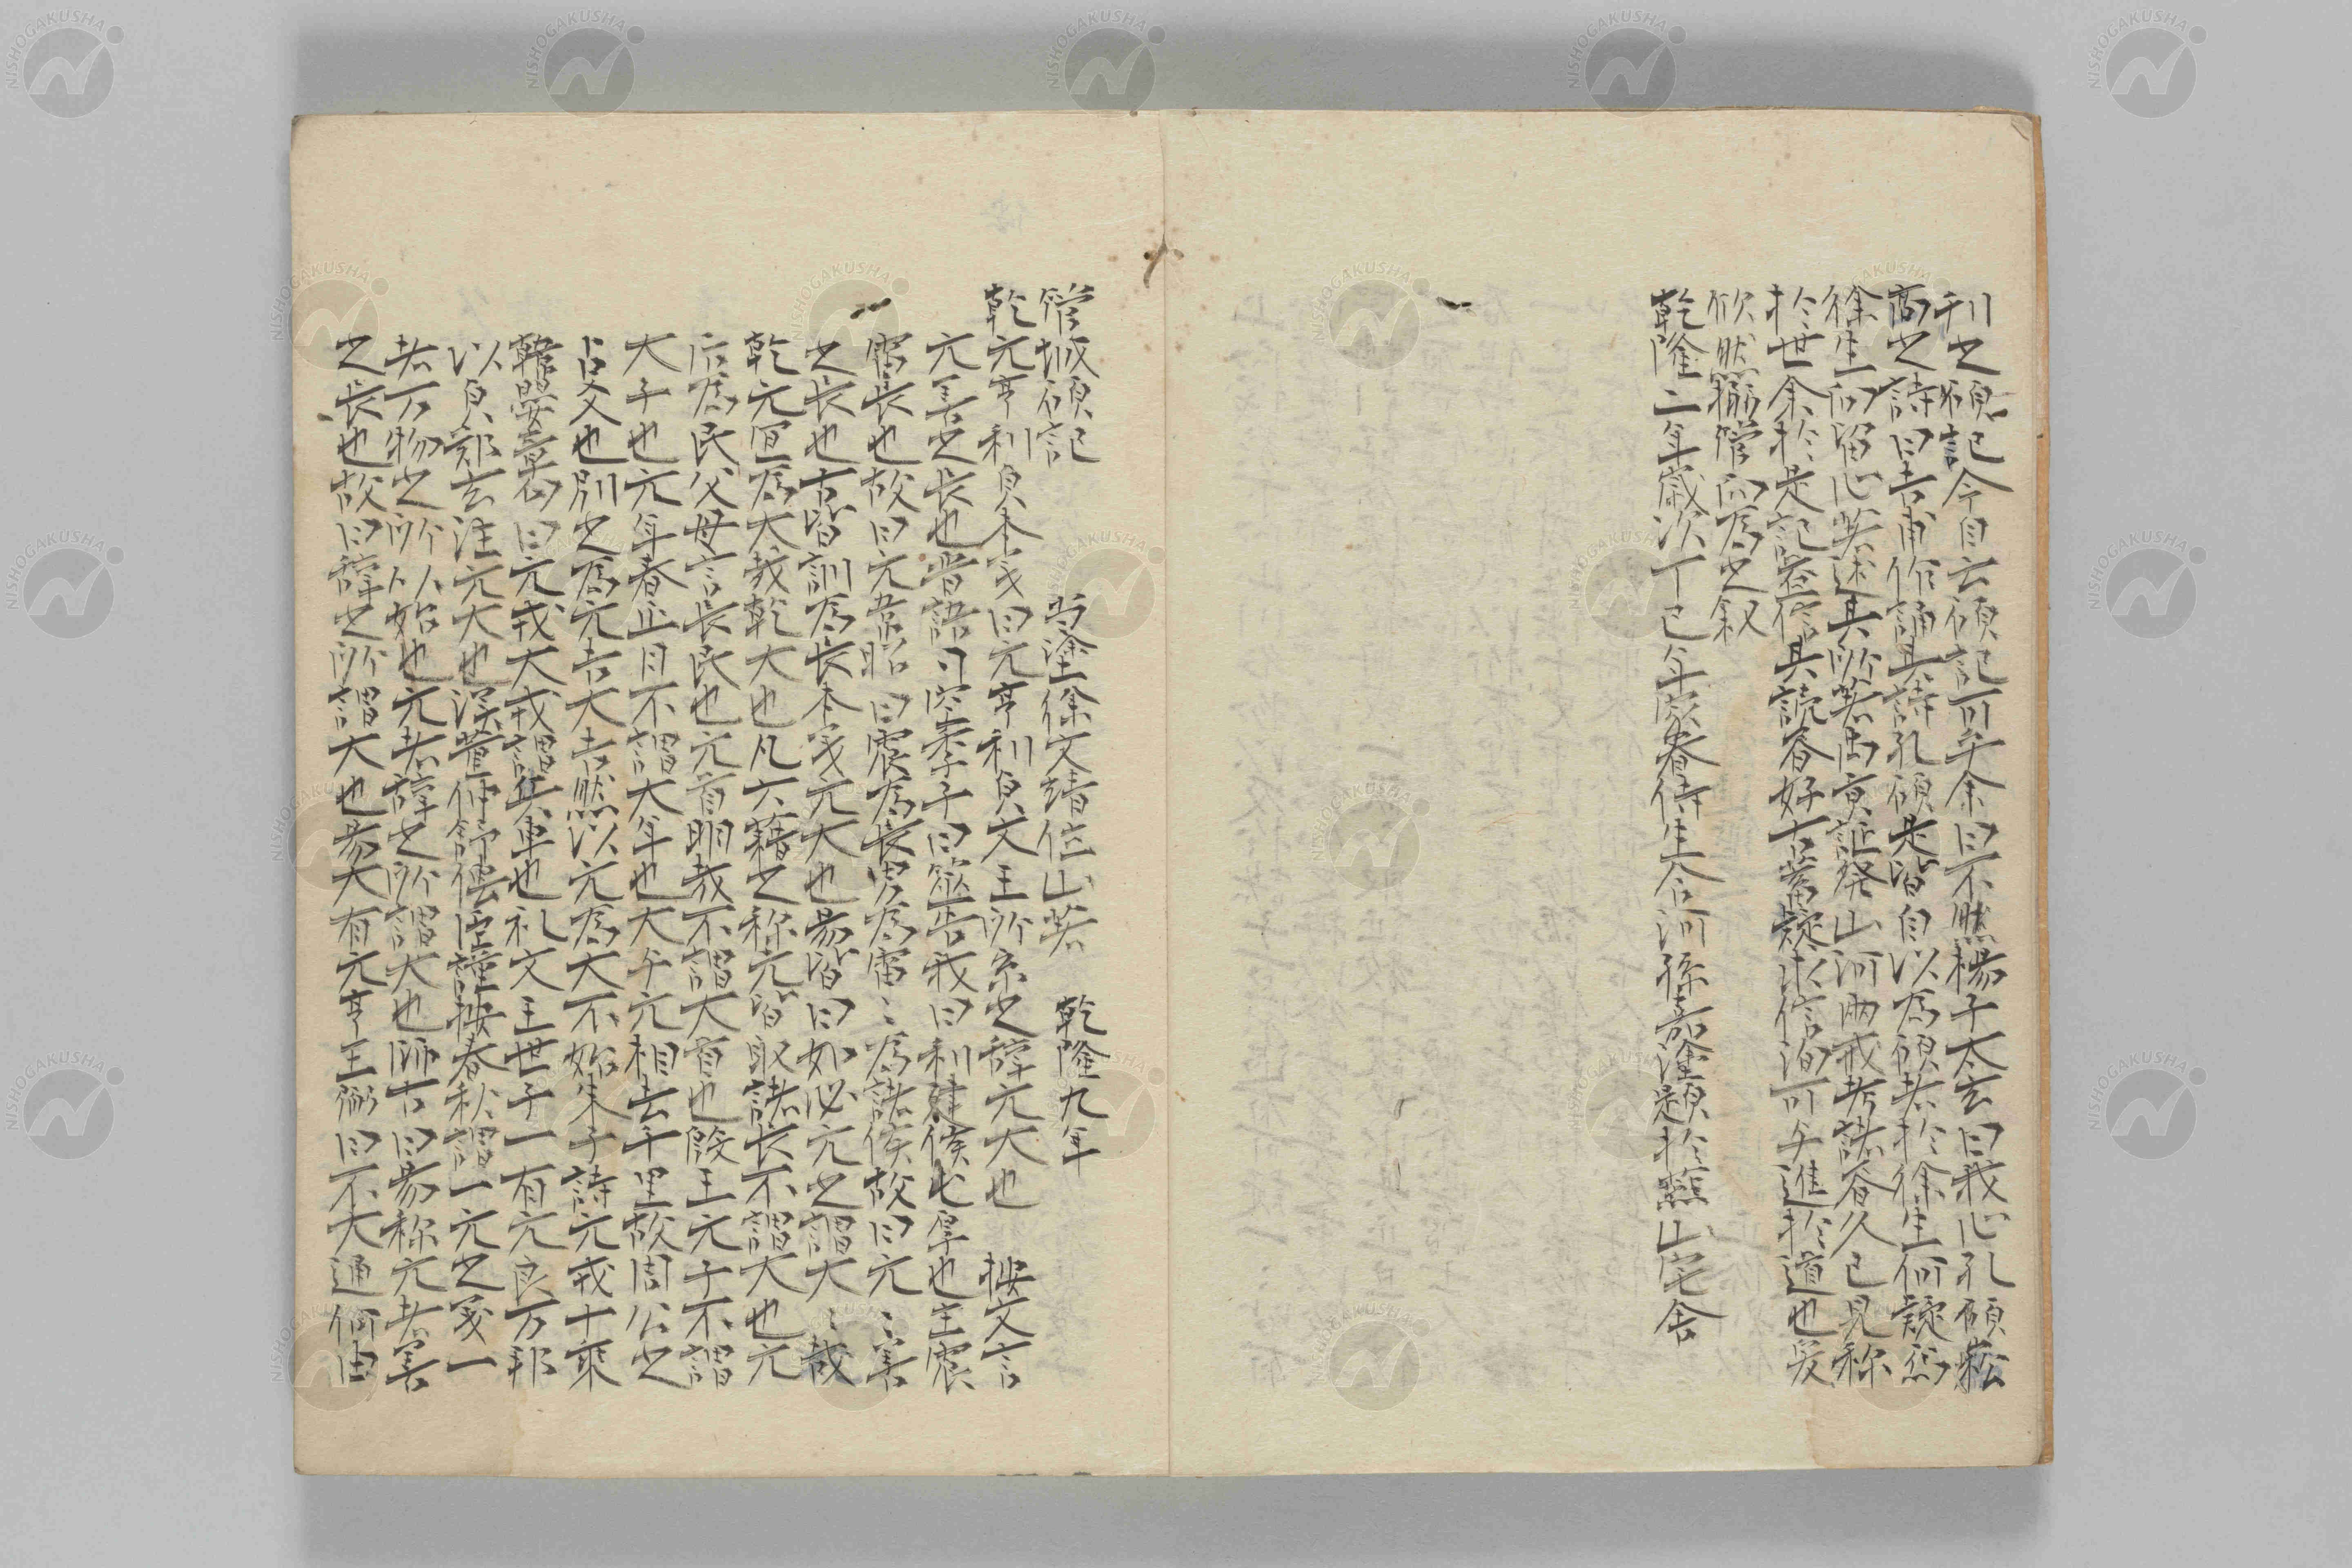 刊之碩記今自云碩記可乎余曰不然楊子太玄曰我心孔碩崧
高之詩曰吉甫作誦其詩孔碩是皆自以為碩者於徐生何疑焉
徐生留心著述其所著禹貢証發山河兩戒考諸眷久已見称
於世余於是記益信其読眷好古蓄疑求信洵可与進於道也爰
欣然搦管而為之叙
乾隆二年歲次丁巳年家眷侍生合河孫嘉淦題於燕山宅舍
管城碩記　　　当塗徐文靖位山著　乾隆九年
乾元亨利貞本義曰元亨利貞文王所系之辞元大也　按文言
元善之長也晋語司空季子曰筮告我曰利建侯屯厚也主震
雷長也故曰元韋昭曰震為長男為雷〻為諸侯故曰元〻善
之長也古皆訓為長本義元大也易皆曰如必元之謂大〻哉
乾元叵為大哉乾大也凡六籍之称元皆取諸長不謂大也元
后為民父母言長民也元首明哉不謂大首也殷王元子不謂
大子也元年春正月不謂大年也大与元相去千里故周公之
占爻也別之為元吉大吉然以元為大不始朱子詩元戎十乘
韓嬰章句曰元戎大戎謂兵車也礼文王世子一有元良万邦
以貞鄭玄注元大也漢董仲舒伝臣謹按春秋謂一元之義一
者万物之所以始也元者辞之所謂大也師古曰易称元者善
之長也故曰辞之所謂大也易大有元亨王弼曰不大通何由